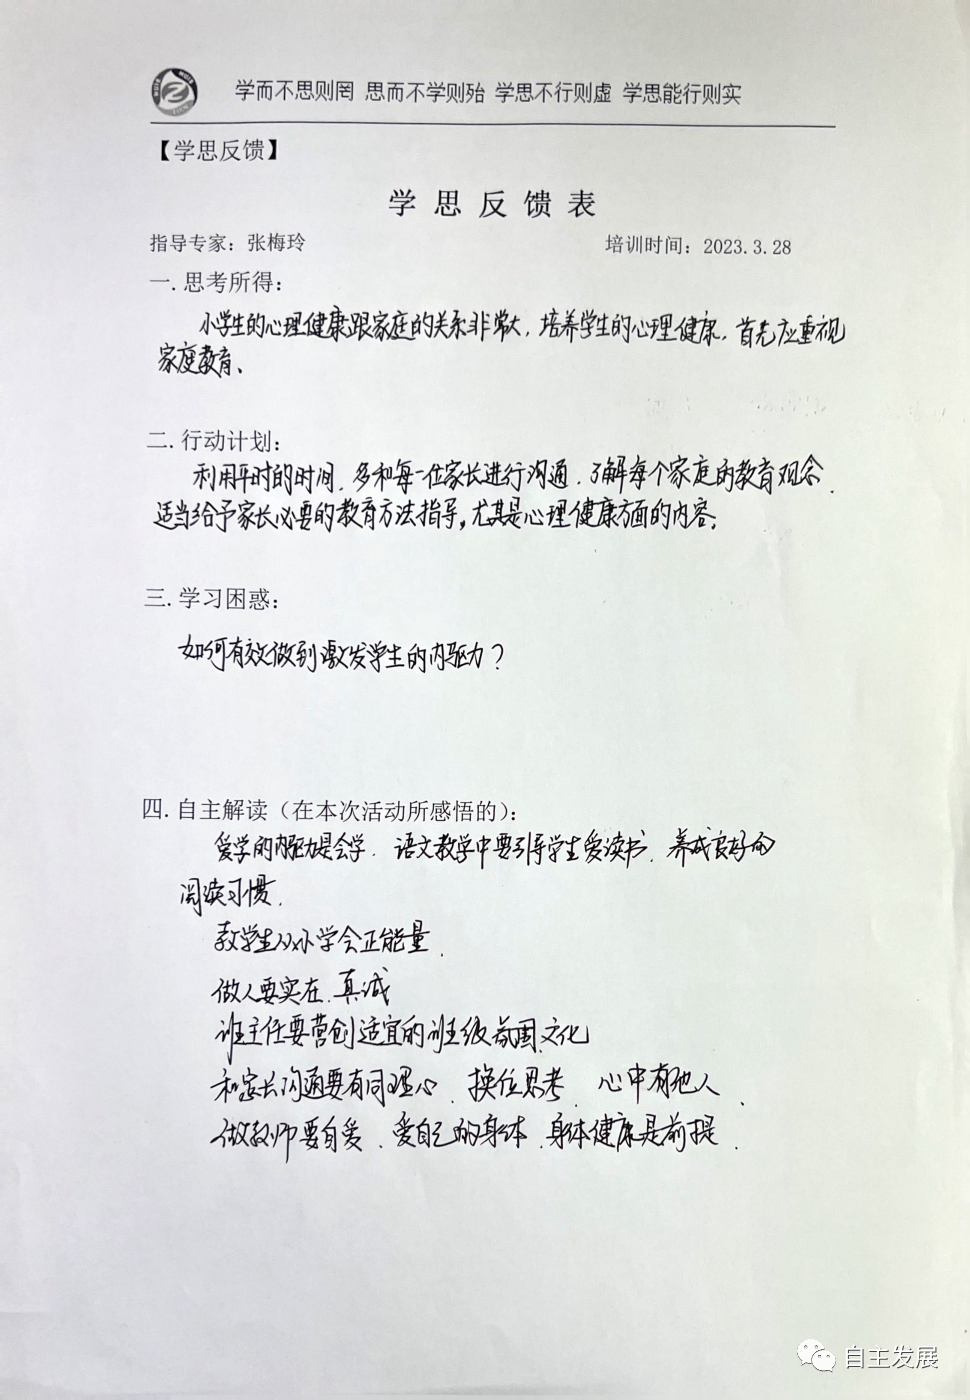 学而不思则罔 思而不学则殆 学思不行则虚 学思能行则实
【学思反馈】
学思反馈表
指导专家：张梅玲 培训时间：2023.3.28
一.思考所得：
小学生的心理健康跟家庭的关系非常大，培养学生的心理健康，首先应重视
家庭教育、
二.行动计划：
利用平时的时间，多和每一位家长进行沟通，了解每个家庭的教育观念，
适当给予家长必要的教育方法指导，尤其是心理健康方面的内容。
三.学习困惑：
如何有效做到激发学生的内驱力？
四.自主解读（在本次活动所感悟的）：
爱学的内驱力是会学．语文教学中要引导学生爱读书．养成良好的
阅读习惯．
教学生从小学会正能量．
做人要实在．真诚
班主任要营创适宜的班级氛围、文化
和家长沟通要有同理心．换位思考．心中有他人．
做教师要自爱．爱自己的身体．身体健康是前提．
自主发展